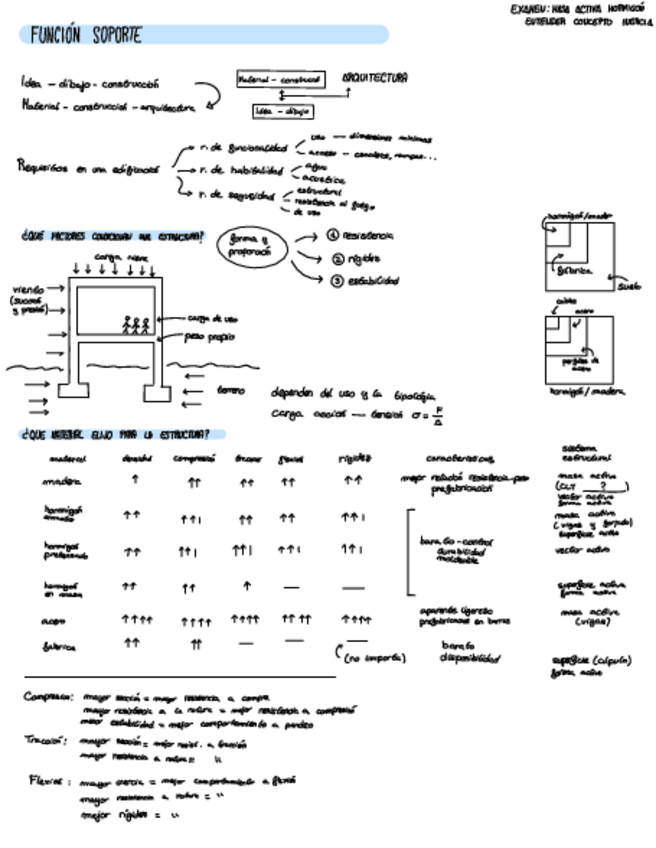 EXAMEN: MASA ACTIVA HORMIGÓN
ENTENDER CONCEPTO INERCIA
FUNCIÓN SOPORTE
Idea - dibujo - construcción
Material - construcción - arquitectura
Material - construcció
ARQUITECTURA
Idea - dibujo
Requisitos en una edificación
r. de funcionalidad
uso — dimensiones mínimas
acceso — escalera, rampas...
r. de habitabilidad
agua
acústica
r. de seguridad
estructural
resistencia al fuego
de uso
¿QUÉ FACTORES CONDICIONAN UNA ESTRUCTURA?
forma y
proporción
1 resistencia
2 rigidez
3 estabilidad
carga nieve
viento
(succión
y presión)
carga de uso
peso propio
terreno
dependen del uso y la tipología
carga axial — tensión σ = F/A
hormigón/madera
fábrica
suelo
cables
acero
perfiles de
acero
hormigón/madera
¿QUÉ MATERIAL ELIJO PARA LA ESTRUCTURA?
material densidad compresión tracción flexión rigidez características sistema
estructural
madera ↑ ↑↑ ↑↑ ↑↑ ↑↑ mejor relación resistencia-peso
prefabricación
masa activa
(CLT ?)
vector activo
forma activa
hormigón
armado ↑↑ ↑↑| ↑↑ ↑↑ ↑↑|
masa activa
(vigas y forjado)
superficie activa
hormigón
pretensado ↑↑ ↑↑| ↑↑| ↑↑| ↑↑|
barato - control
durabilidad
moldeable
vector activo
hormigón
en masa ↑↑ ↑↑ ↑ — —
superficie activa
forma activa
acero ↑↑↑↑ ↑↑↑↑ ↑↑↑↑ ↑↑↑↑ ↑↑↑↑ aparente ligereza
prefabricación en barras
masa activa
(vigas)
fábrica ↑↑ ↑↑ — — —
(no importa)
barato
disponibilidad
superficie (cúpula)
forma activa
Compresión: mayor sección = mayor resistencia a compre.
mayor resistencia a la rotura = mejor resistencia a compresión
mejor estabilidad = mejor comportamiento a pandeo
Tracción: mayor sección = mejor resist. a tracción
mayor resistencia a rotura = "
Flexión: mayor inercia = mejor comportamiento a flexión
mayor resistencia a rotura = "
mejor rigidez = "